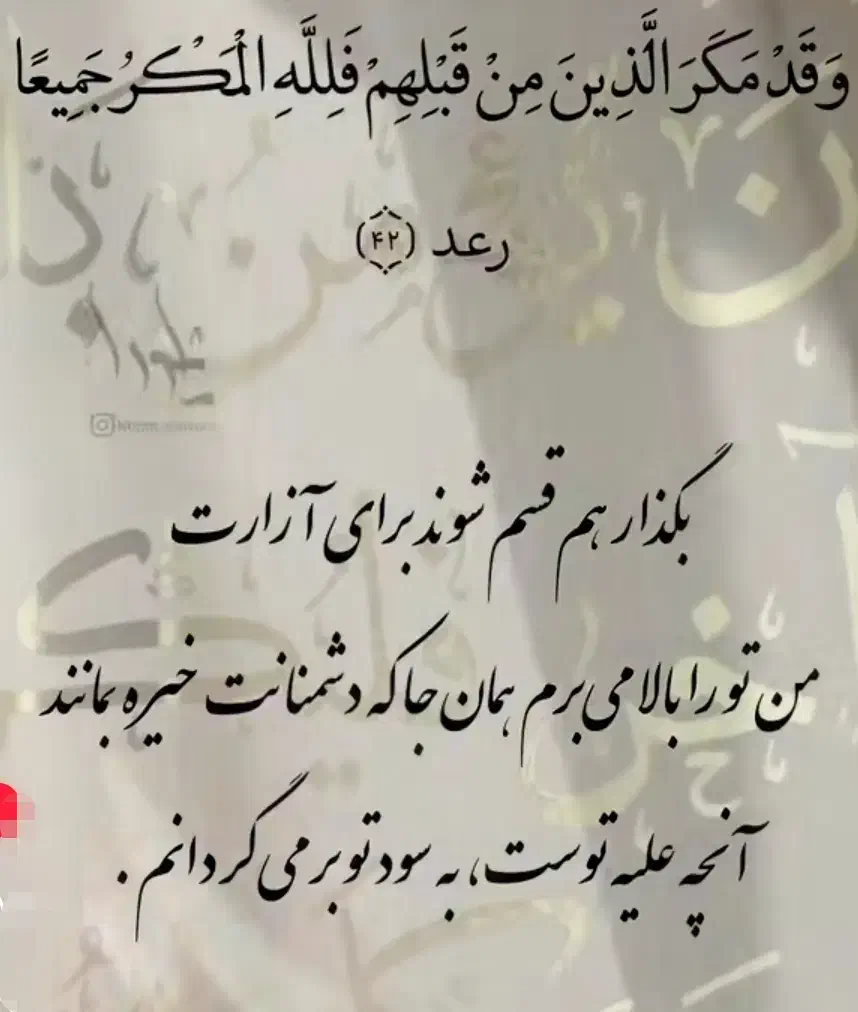 وَقَدْ مَكَرَ الَّذِينَ مِنْ قَبْلِهِمْ فَلِلَّهِ الْمَكْرُ جَمِيعًا
رعد (۴۲)
بگذار هم قسم شوند برای آزارت
من تو را بالا می‌برم همان جا که دشمنانت خیره بمانند
آنچه علیه توست، به سود تو بر می گردانم .